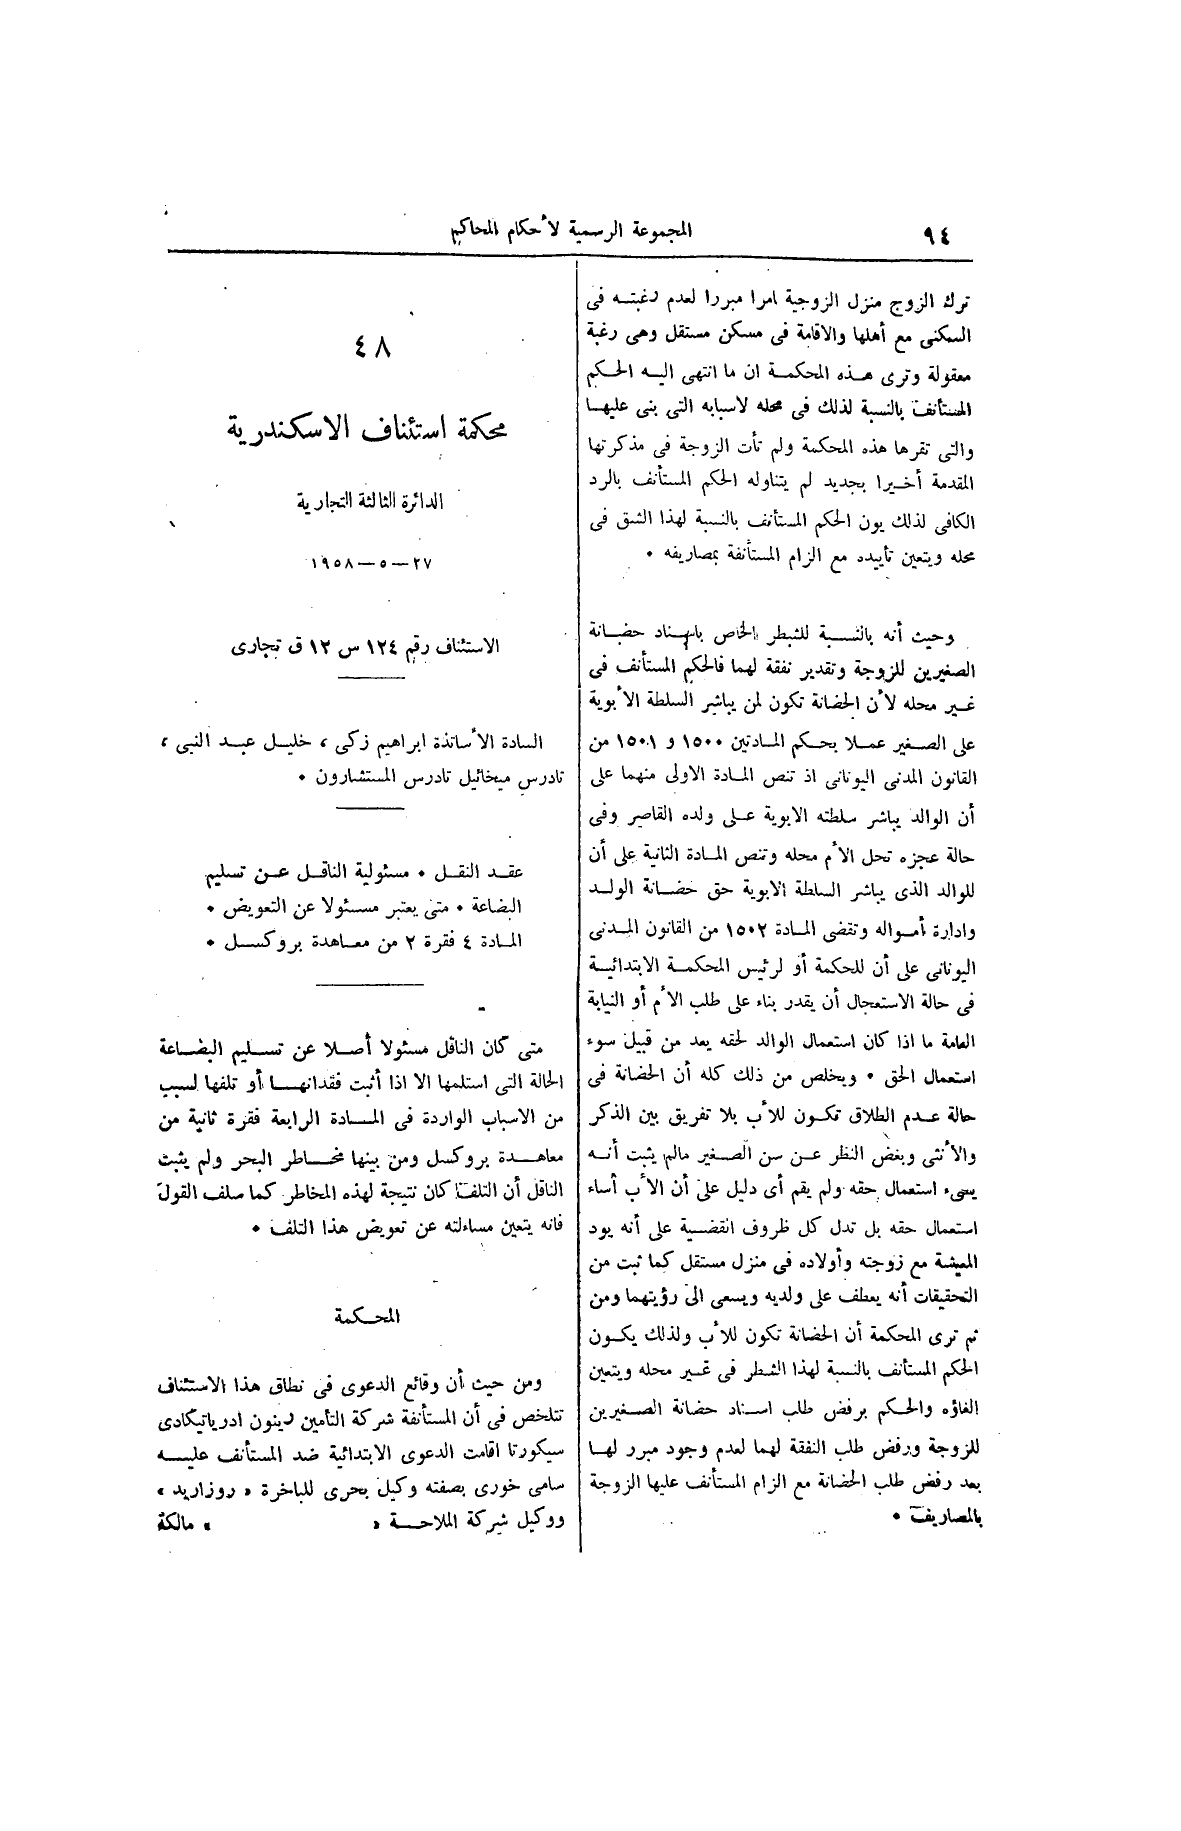 ٩٤
المجموعة الرسمية لأحكام المحاكم
ترك الزوج منزل الزوجية امرا مبررا لعدم رغبته فى
السكنى مع أهلها والاقامة فى مسكن مستقل وهى رغبة
معقولة وترى هذه المحكمة ان ما انتهى اليه الحكم
المستأنف بالنسبة لذلك فى محله لاسبابه التى بنى عليها
والتى تقرها هذه المحكمة ولم تأت الزوجة فى مذكرتها
المقدمة أخيرا بجديد لم يتناوله الحكم المستأنف بالرد
الكافى لذلك يون الحكم المستأنف بالنسبة لهذا الشق فى
محله ويتعين تأييده مع الزام المستأنفة بمصاريفه .
وحيث أنه بالنسبة للشطر الخاص باسناد حضانة
الصغيرين للزوجة وتقدير نفقة لهما فالحكم المستأنف فى
غير محله لأن الحضانة تكون لمن يباشر السلطة الأبوية
على الصغير عملا بحكم المادتين ١٥٠٠ و ١٥٠١ من
القانون المدنى اليونانى اذ تنص المادة الاولى منهما على
أن الوالد يباشر سلطته الابوية على ولده القاصر وفى
حالة عجزه تحل الأم محله وتنص المادة الثانية على أن
للوالد الذى يباشر السلطة الابوية حق حضانة الولد
وادارة أمواله وتقضى المادة ١٥٠٢ من القانون المدنى
اليونانى على أن للحكمة أو لرئيس المحكمة الابتدائية
فى حالة الاستعجال أن يقدر بناء على طلب الأم أو النيابة
العامة ما اذا كان استعمال الوالد لحقه يعد من قبيل سوء
استعمال الحق . ويخلص من ذلك كله أن الحضانة فى
حالة عدم الطلاق تكون للأب بلا تفريق بين الذكر
والأنثى وبغض النظر عن سن الصغير مالم يثبت أنه
يسىء استعمال حقه ولم يقم أى دليل على أن الأب أساء
استعمال حقه بل تدل كل ظروف القضية على أنه يود
المعيشة مع زوجته وأولاده فى منزل مستقل كما ثبت من
التحقيقات أنه يعطف على ولديه ويسعى الى رؤيتهما ومن
ثم ترى المحكمة أن الحضانة تكون للأب ولذلك يكون
الحكم المستأنف بالنسبة لهذا الشطر فى غير محله ويتعين
الغاؤه والحكم برفض طلب اسناد حضانة الصغيرين
للزوجة ورفض طلب النفقة لهما لعدم وجود مبرر لها
بعد رفض طلب الحضانة مع الزام المستأنف عليها الزوجة
بالمصاريف .
٤٨
محكمة استئناف الاسكندرية
الدائرة الثالثة التجارية
٢٧ – ٥ – ١٩٥٨
الاستئناف رقم ١٢٤ س ١٢ ق تجارى
السادة الأساتذة ابراهيم زكى ، خليل عبد النبى ،
تادرس ميخائيل تادرس المستشارون .
عقد النقل . مسئولية الناقل عن تسليم
البضاعة . متى يعتبر مسئولا عن التعويض .
المادة ٤ فقرة ٢ من معاهدة بروكسل .
متى كان الناقل مسئولا أصلا عن تسليم البضاعة
الحالة التى استلمها الا اذا أثبت فقدانها أو تلفها لسبب
من الاسباب الواردة فى المادة الرابعة فقرة ثانية من
معاهدة بروكسل ومن بينها مخاطر البحر ولم يثبت
الناقل أن التلف كان نتيجة لهذه المخاطر كما سلف القول
فانه يتعين مساءلته عن تعويض هذا التلف .
المحكمة
ومن حيث أن وقائع الدعوى فى نطاق هذا الاستئناف
تتلخص فى أن المستأنفة شركة التأمين رينون ادرياتيكادى
سيكورتا اقامت الدعوى الابتدائية ضد المستأنف عليه
سامى خورى بصفته وكيل بحرى للباخرة « روزاريد »
ووكيل شركة الملاحة « » مالكة